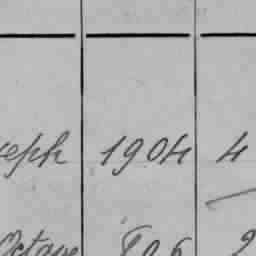 eph 1904 4
Octave 806